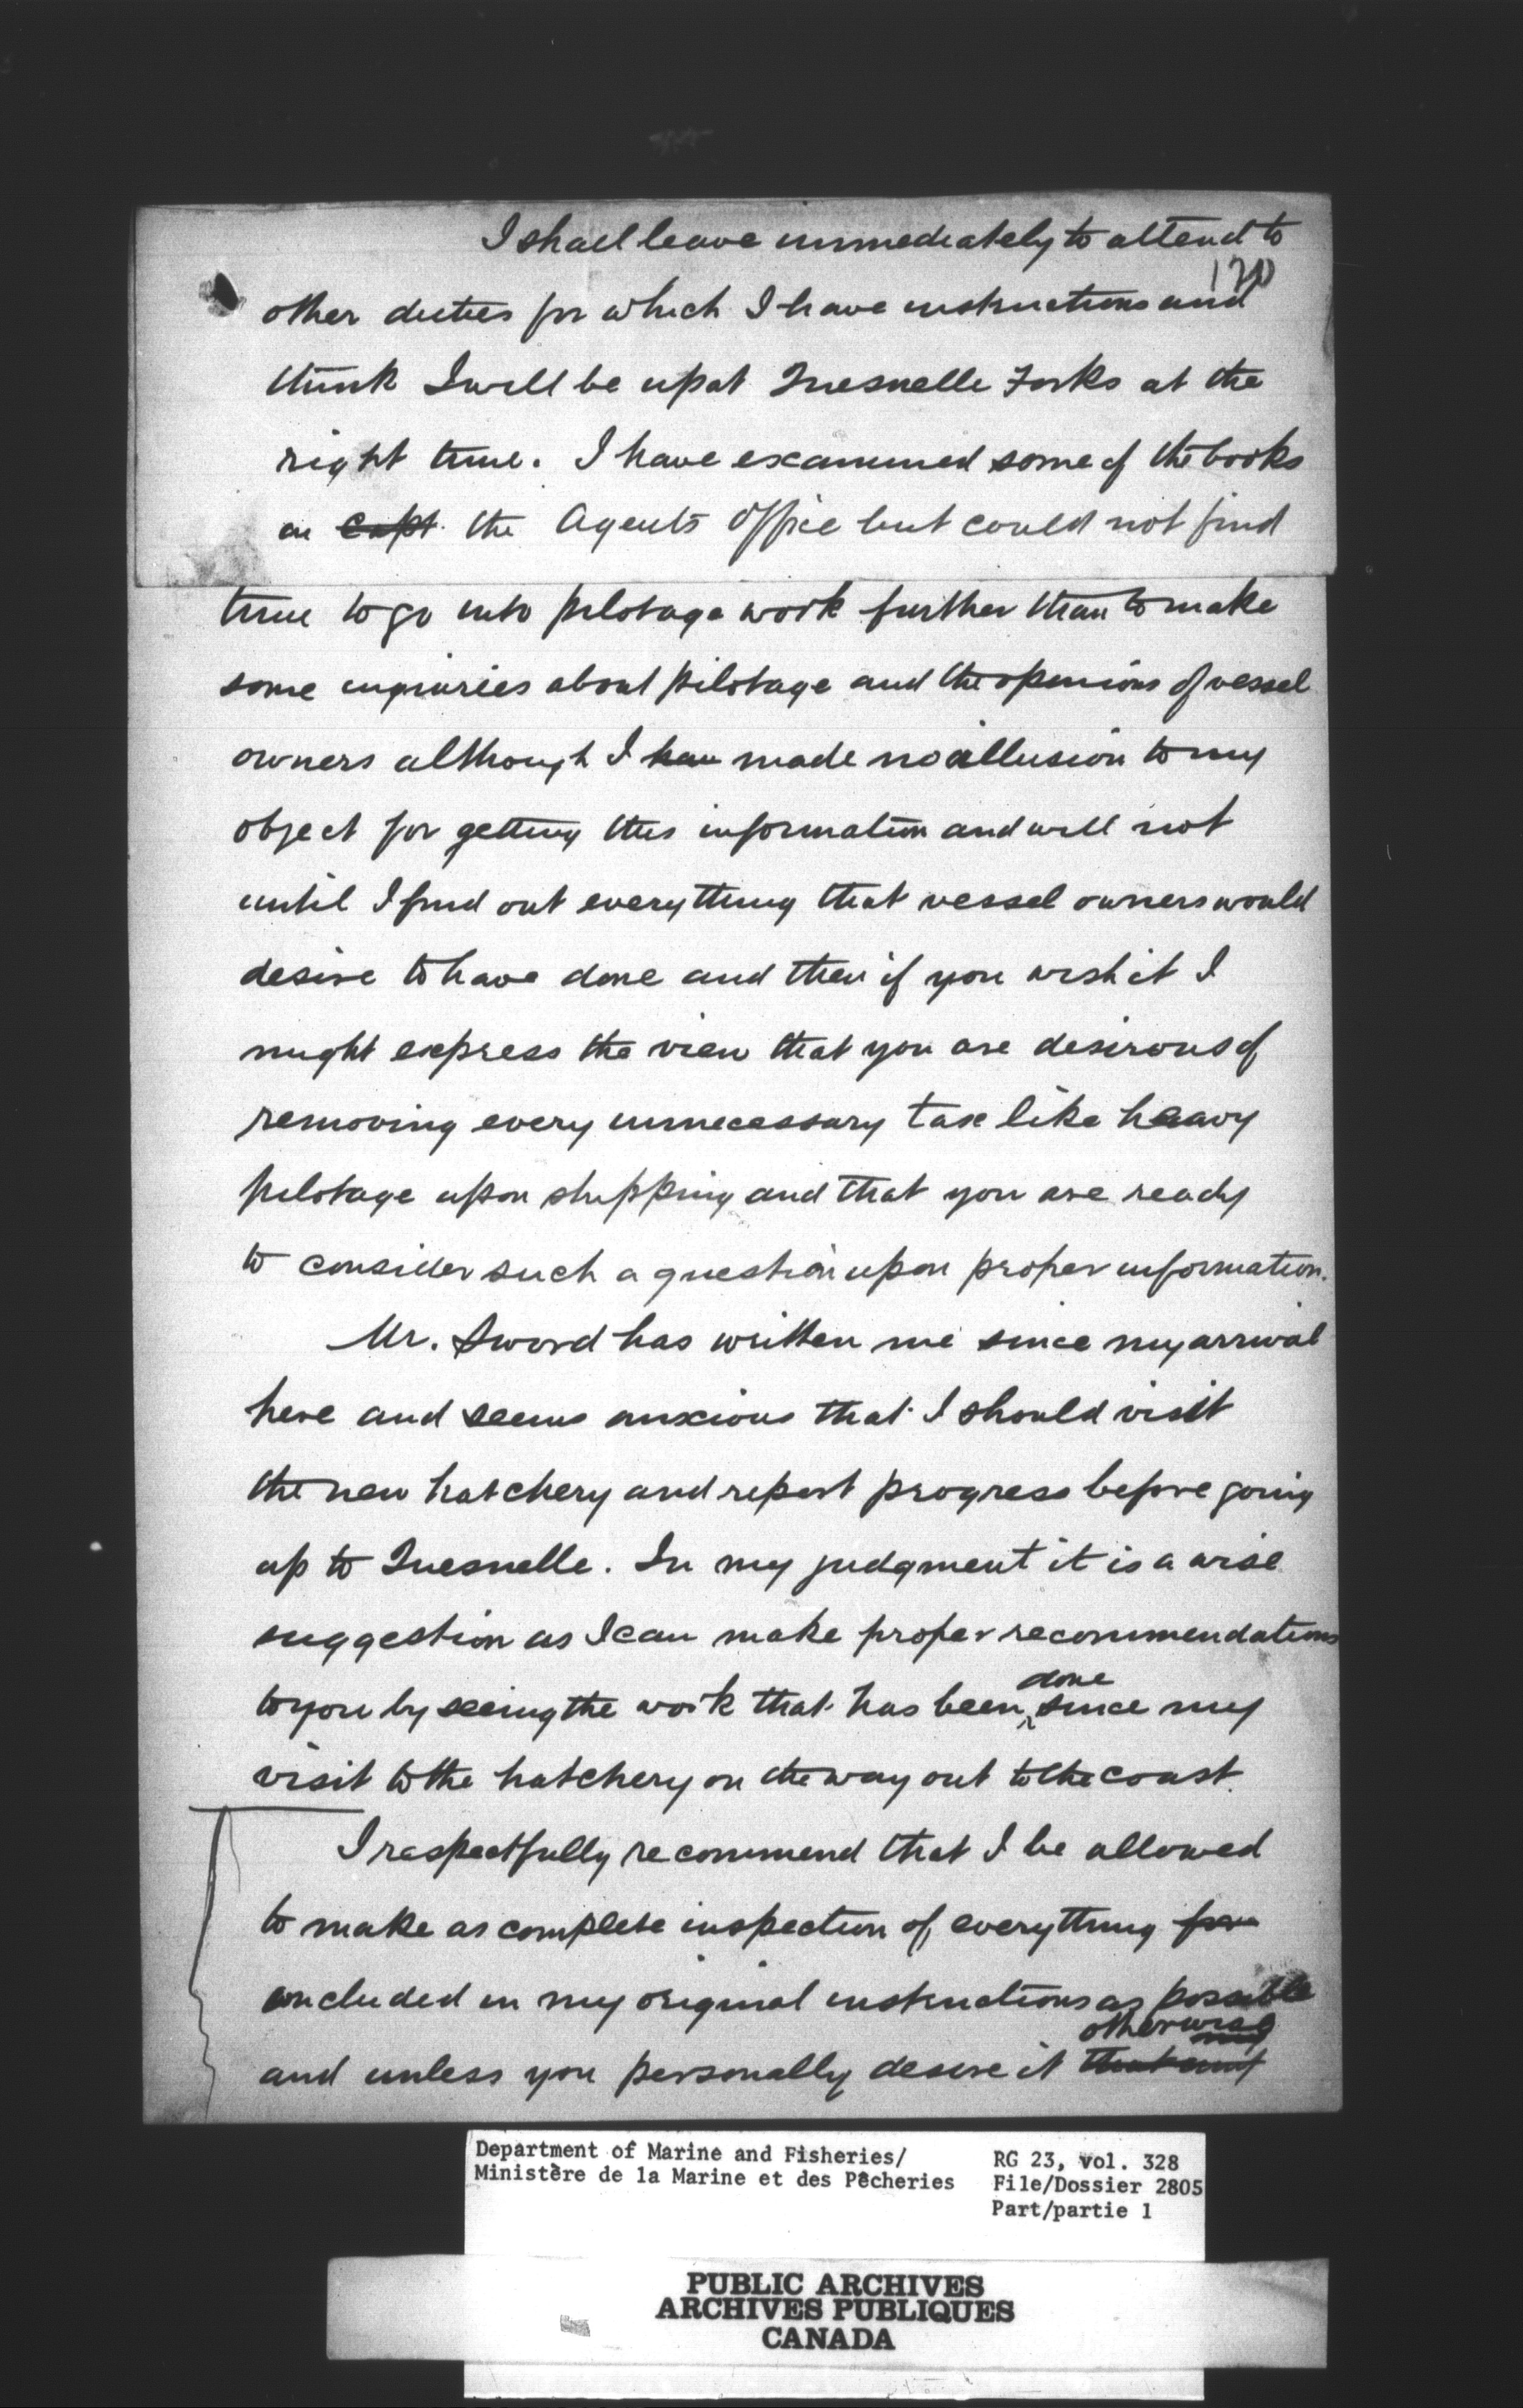 I shall leave immediately to attend to
170
other duties for which I have instructions and
think I will be up at Quesnelle Forks at the
right time. I have examined some of the books
in Capt. the Agents Office but could not find
time to go into pilotage work further than to make
some inquiries about pilotage and the opinions of vessel
owners although I have made no allusion to my
object for getting this information and will not
until I find out everything that vessel owners would
desire to have done and then if you wish it I
might express the view that you are desirous of
removing every unnecessary tax like heavy
pilotage upon shipping and that you are ready
to consider such a question upon proper information.
Mr. Sword has written me since my arrival
here and seems anxious that I should visit
the new hatchery and report progress before going
up to Quesnelle. In my judgment it is a wise
suggestion as I can make proper recommendations
done
to you by seeing the work that has been since my
visit to the hatchery on the way out to the coast.
I respectfully recommend that I be allowed
to make as complete inspection of everything
included in my original instructions as possible
otherwise
and unless you personally desire it
Department of Marine and Fisheries/
Ministère de la Marine et des Pêcheries
RG 23, vol. 328
File/Dossier 2805
Part/partie 1
PUBLIC ARCHIVES
ARCHIVES PUBLIQUES
CANADA